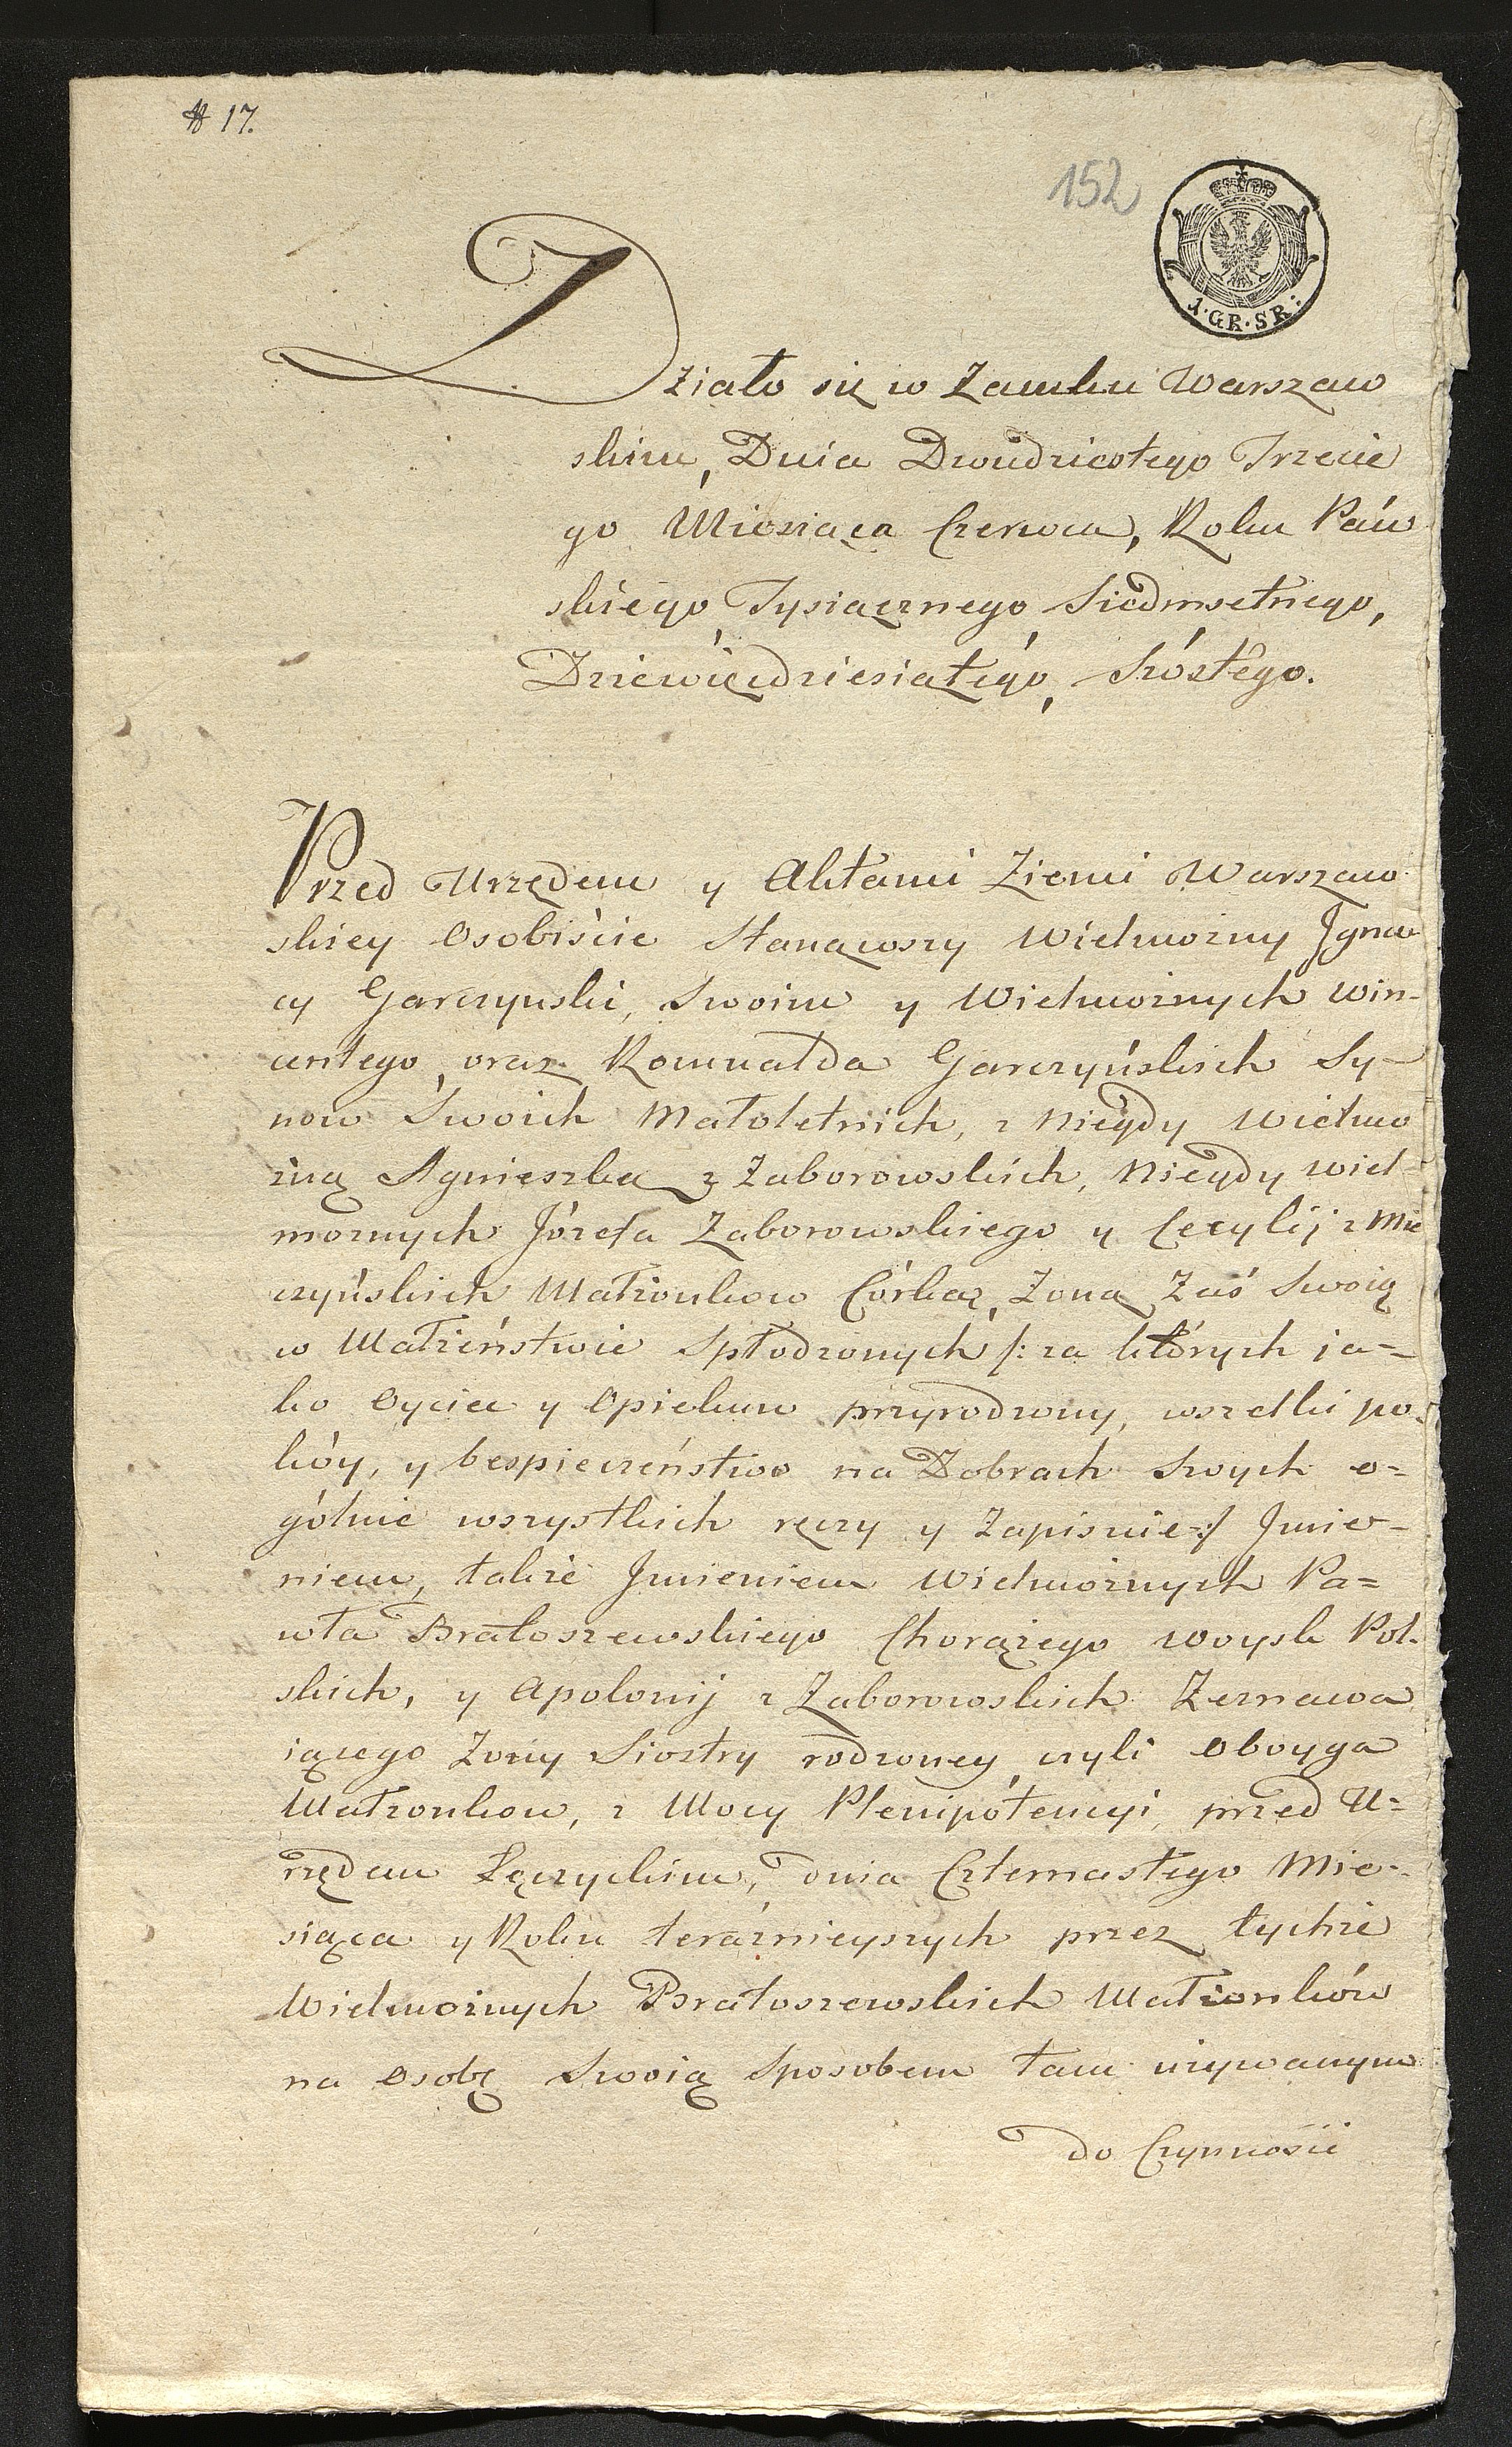 # 17.
152
1·GR·SR:
Działo się w Zamku Warszaw
skim, Dnia Dwudziestego Trzecie
go Miesiąca Czerwca, Roku Pań
skiego Tysiącznego Siedmsetnego,
Dziewięćdziesiątego, Szóstego.
Przed Urzędem y Aktami Ziemi Warszaw
skiey Osobiście Stanąwszy Wielmożny Igna
cy Garczynski, Swoim y Wielmożnych Win-
centego oraz Romualda Garczyńskich Sy-
now Swoich Małoletnich, z Niegdy Wielmo
żną Agnieszką z Zaborowskich, Niegdy Wiel-
możnych Józefa Zaborowskiego y Cecylij z Mie
czyńskich Małżonkow Córką, Zoną Zaś Swoią
w Małżeństwie Spłodzonych /: za których ja=
ko Oyciec y Opiekun przyrodzony, wszelki po-
kóy, y bespieczeństwo na Dobrach Swych o=
gólnie wszystkich ręczy y Zapisuie :/ Jmie-
niem, także Jmieniem Wielmożnych Pa=
wła Bratoszewskiego Chorążego Woysk Pol-
skich, y Apolonij z Zaborowskich Zeznawa
iącego Żony Siostry rodzoney czyli Oboyga
Małżonkow, z Mocy Plenipotencyi, przed U=
rzędem Łęczyckim, dnia Czternastego Mie-
siąca y Roku teraznieyszych przez tychże
Wielmożnych Bratoszewskich Małżonków
na Osobę Swoią Sposobem tam używanym
do Czynności